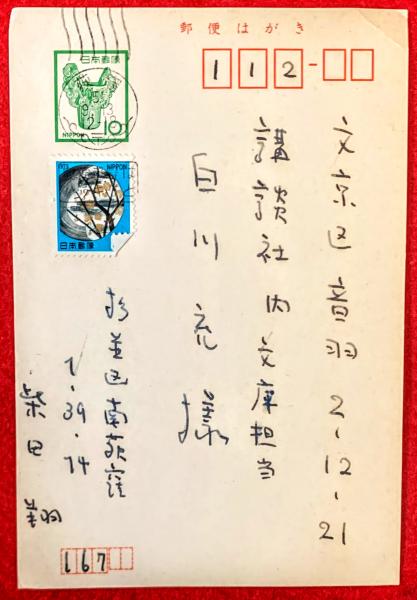 郵便はがき
112-
日本郵便
NIPPON
10
日本郵便
NIPPON
文京区音羽2-12-21
講談社内文庫担当
白川充様
杉並区南荻窪
1-39-14
柴田翔
167